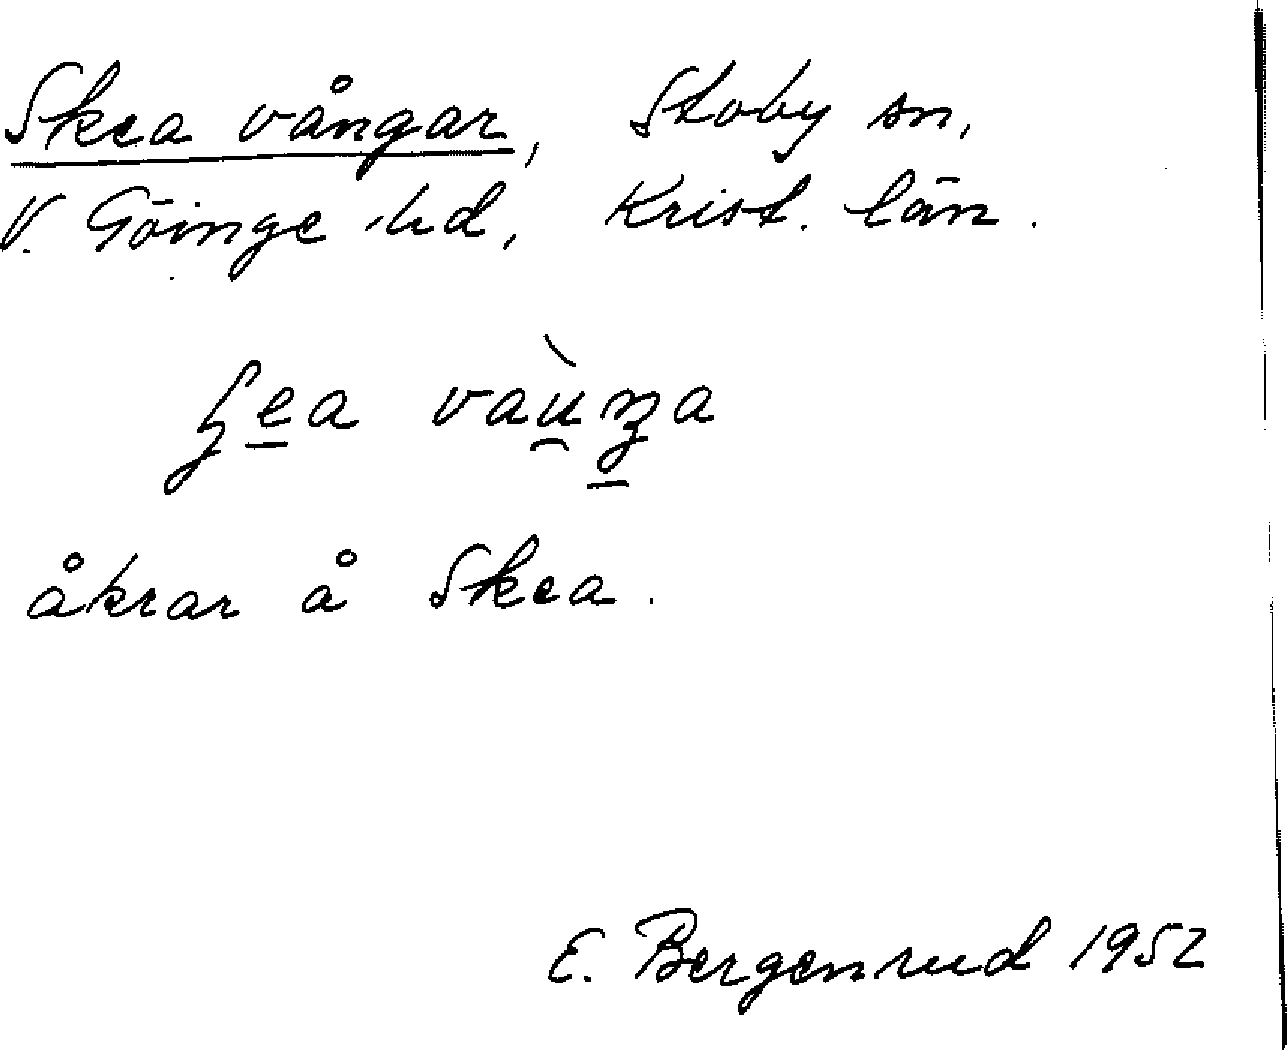 Skea vångar, Stoby sn,
V. Göinge hd, Krist. län.
åkrar å Skea.
E. Bergenrud 1952